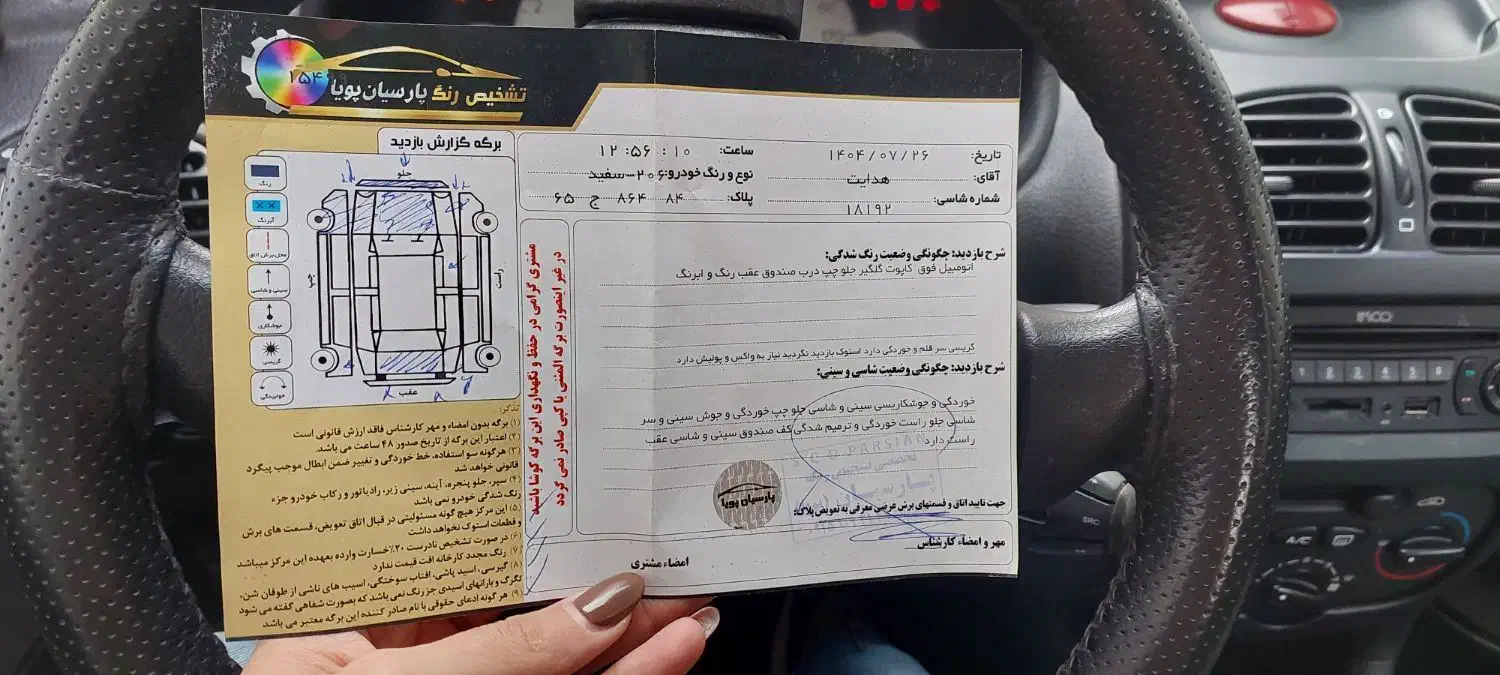 ۱۵۴
تشخیص رنگ پارسیان پویا
برگه گزارش بازدید
تاریخ: ۱۴۰۴/۰۷/۲۶
ساعت: ۱۰ : ۵۶: ۱۲
آقای: هدایت
نوع و رنگ خودرو: ۲۰۶-سفید
شماره شاسی: ۱۸۱۹۲
پلاک: ۸۴ ۸۶۴ ج ۶۵
جلو
چپ
راست
عقب
رنگ
آبرنگ
محل برش اتاق
سینی و شاسی
جوشکاری
گریسی
خوردگی
مشتری گرامی در حفظ و نگهداری این برگه کوشا باشید
در غیر اینصورت برگه المثنی یا کپی صادر نمی گردد
شرح بازدید: چگونگی وضعیت رنگ شدگی:
اتومبیل فوق کاپوت گلگیر جلو چپ درب صندوق عقب رنگ و ابرنگ
گریسی سر قلم و خوردکی دارد استوک بازدید نگردید نیاز به واکس و پولیش دارد
شرح بازدید: چگونگی وضعیت شاسی و سینی:
خوردگی و جوشکاریسی سینی و شاسی جلو چپ خوردگی و جوش سینی و سر
شاسی جلو راست خوردگی و ترمیم شدگی کف صندوق سینی و شاسی عقب
راست دارد
پارسیان پویا
جهت تایید اتاق و قسمتهای برش عرضی معرفی به تعویض پلاک:
مهر و امضاء کارشناس
امضاء مشتری
تذکر:
۱) برگه بدون امضاء و مهر کارشناس فاقد ارزش قانونی است
۲) اعتبار این برگه از تاریخ صدور ۴۸ ساعت می باشد.
۳) هرگونه سو استفاده، خط خوردگی و تغییر ضمن ابطال موجب پیگرد
قانونی خواهد شد
۴) سپر، جلو پنجره، آینه، سینی زیر، رادیاتور و رکاب خودرو جزء
رنگ شدگی خودرو نمی باشد
۵) این مرکز هیچ گونه مسئولیتی در قبال اتاق تعویض، قسمت های برش
و قطعات استوک نخواهد داشت
۶) در صورت تشخیص نادرست ۲۰٪ خسارت وارده بعهده این مرکز میباشد
۷) رنگ مجدد کارخانه افت قیمت ندارد
۸) گیرسی، اسید پاشی، افتاب سوختگی، اسیب های ناشی از طوفان شن،
تگرگ و بارانهای اسیدی جز رنگ نمی باشد که بصورت شفاهی گفته می شود
۹) هر گونه ادعای حقوقی با نام صادر کننده این برگه معتبر می باشد
IMCO
1 2 3 4 5 6
SRC
A/C